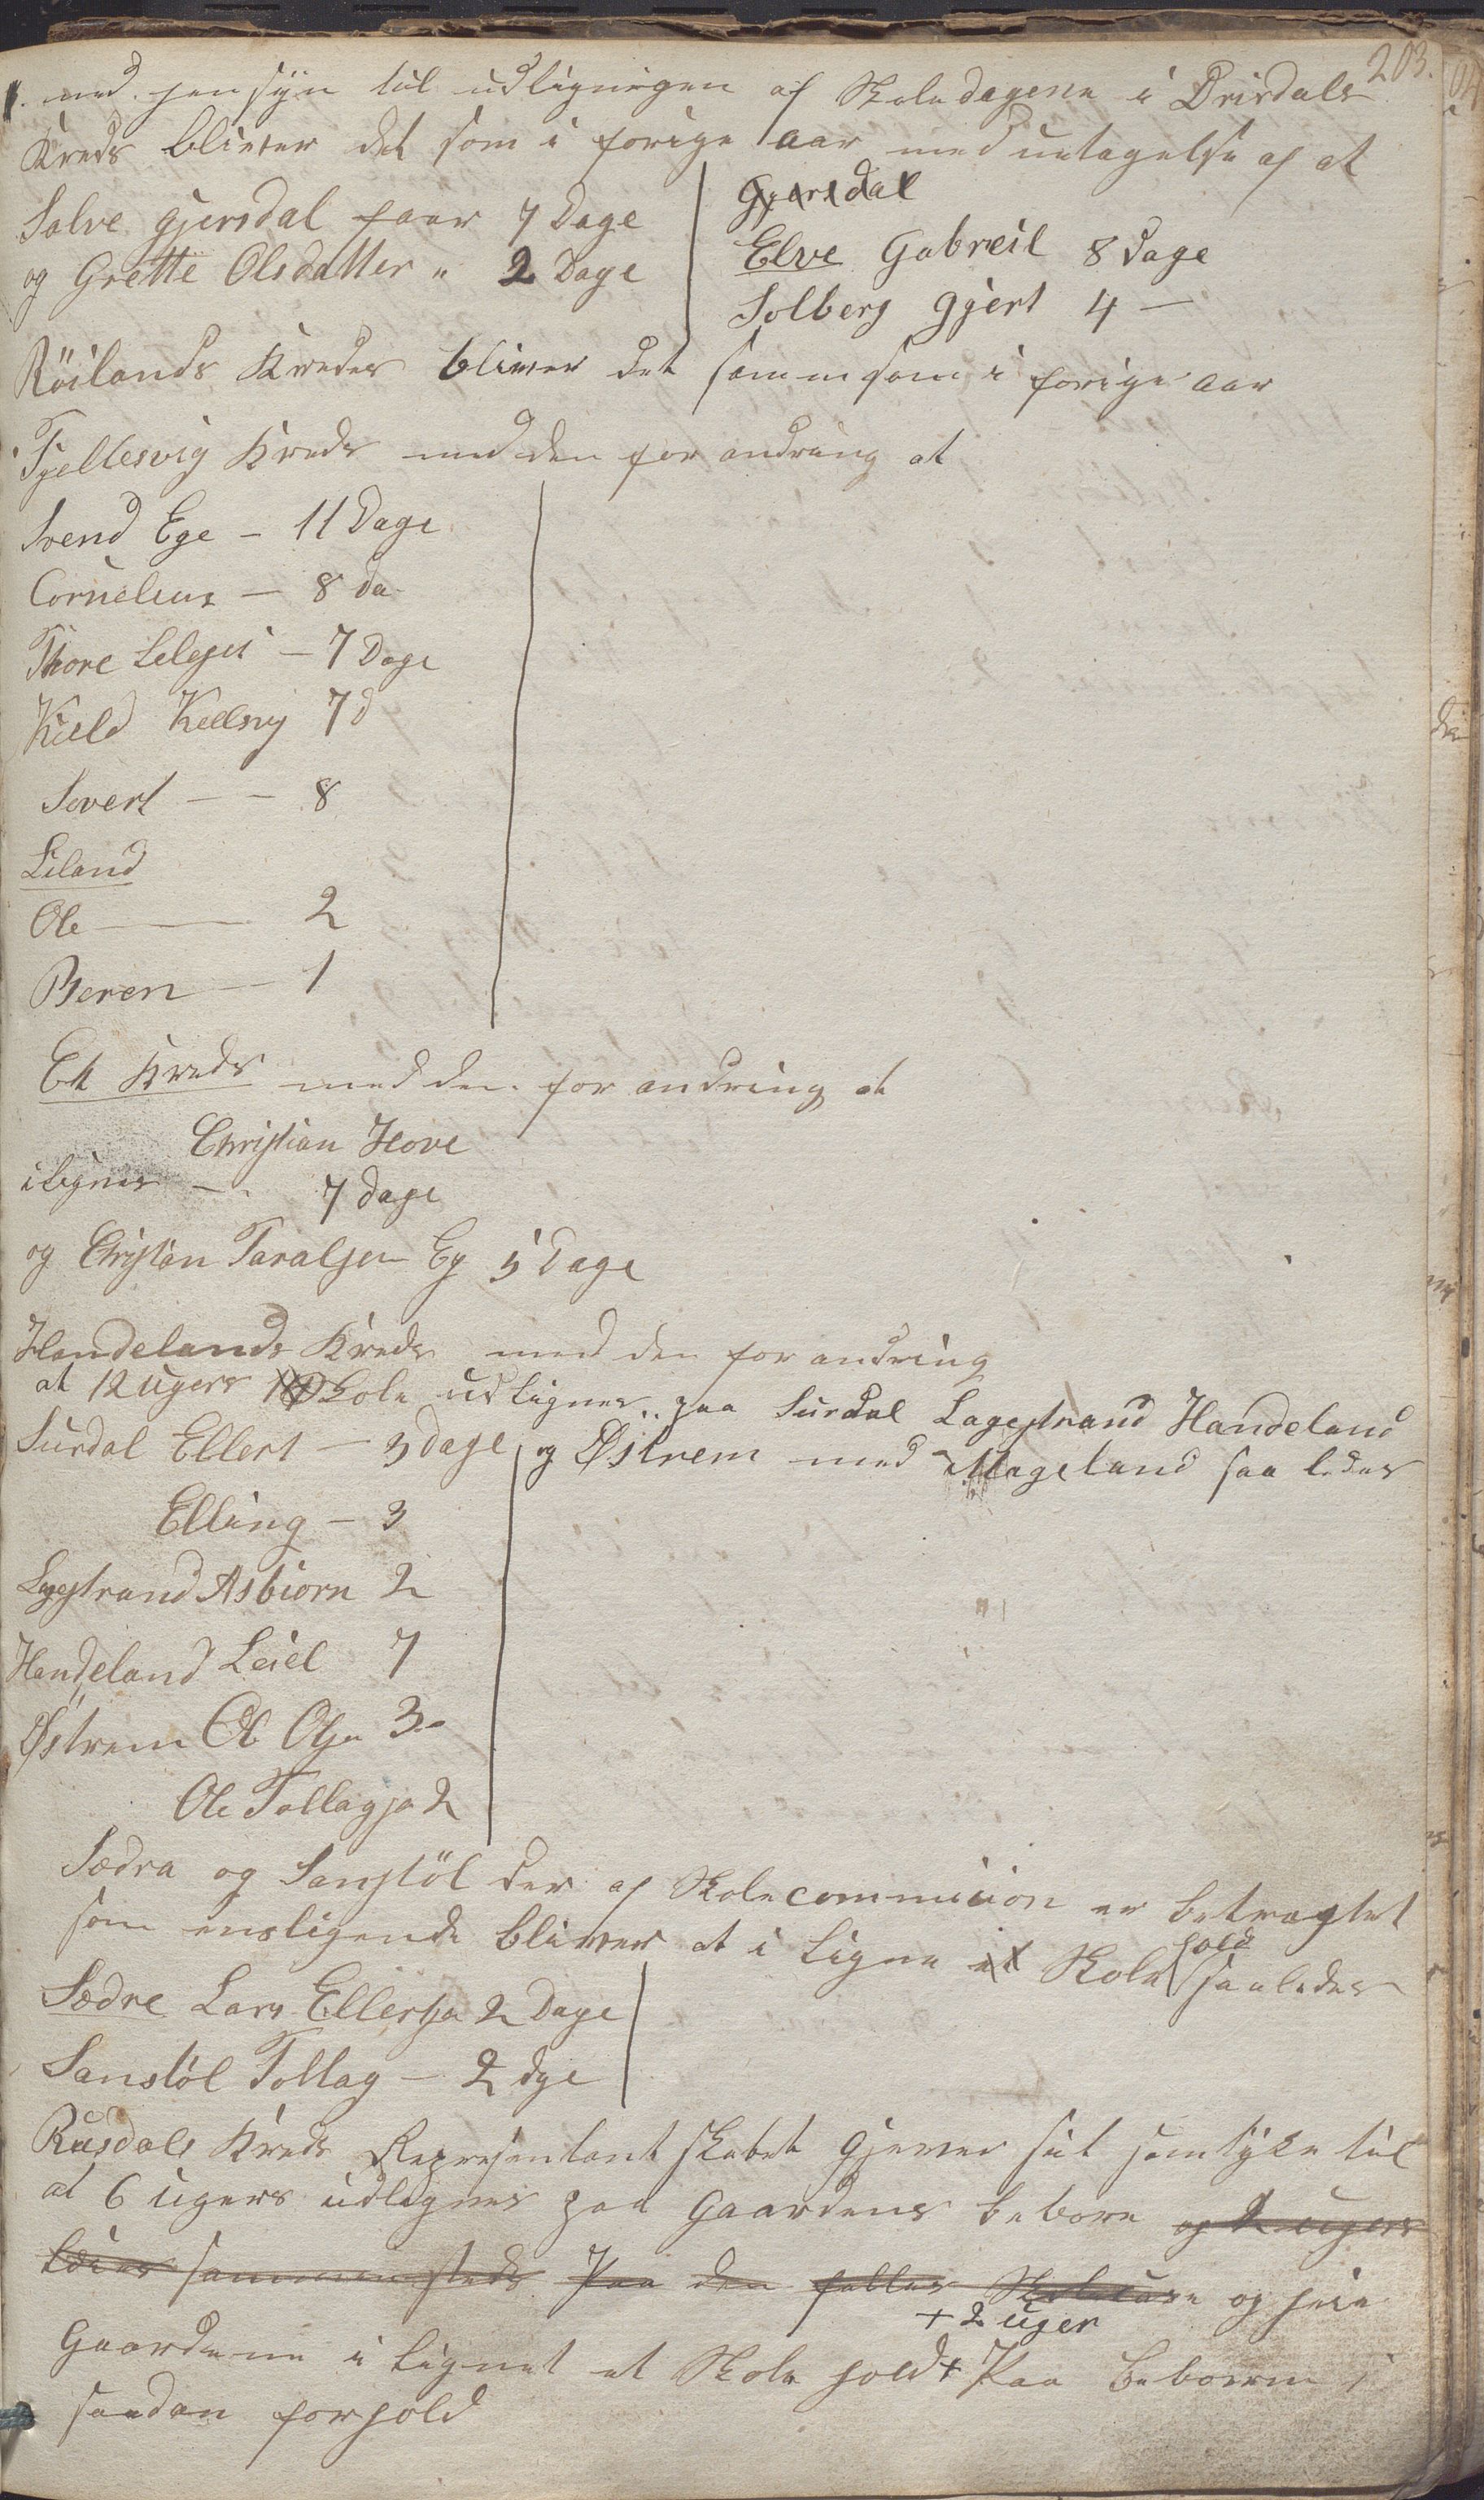 203.
med hensÿn til udligningen af Skoledagene i Drivdals
Kreds bliver det som i forige aar med untagelse af at
Salve gjersdal faar 7 Dage
og Grette Olsdatter " 2 Dage
Gjersdal
Elve Gabreil 8 Dage
Solberg Gjert 4 —
Röilands Kreds bliver det samm som i forige aar
Tjellesvig Kreds med den forandring at
Svend Ege - 11 Dage
Cornelius — 8 Da
Thore - 7 Dage
Kield 7 d
Sivert — - 8
Liland
Ole — 2
Beren — 1
Ek Kreds med den forandring at
Christian Hove
ilignes — 7 dage
og Christian Taraldsen Eg 5 Dage
Handelands Kreds med den forandring
at 12 ugers Skole udlignes paa Surdal Lagestrand Handeland
og Østrem med Mageland saa ledes
Surdal Ellert — 3 dage
Elling — 3
Lagestrand Asbiorn 2
Handeland Leiel 7
Østrem Ole Olsen 3
Ole Tollagsen 2
Sædra og Sanstöl der af Skolecommision er betragtet
som ensligende bliver at i ligne et Skolehold saaledes
Sædre Lars Ellertsen 2 Dage
Sanstöl Tollag — 2 dge
Rusdals Kreds Representantskabet gjever sit samtÿke til
at 6 ugers udlignes paa Gaardens beboere og 2 ugers
sammensteds Paa den felles og hiie
Gaardene i lignet et Skole hold + Paa beboerne i
+ 2 uger
saadan forhold